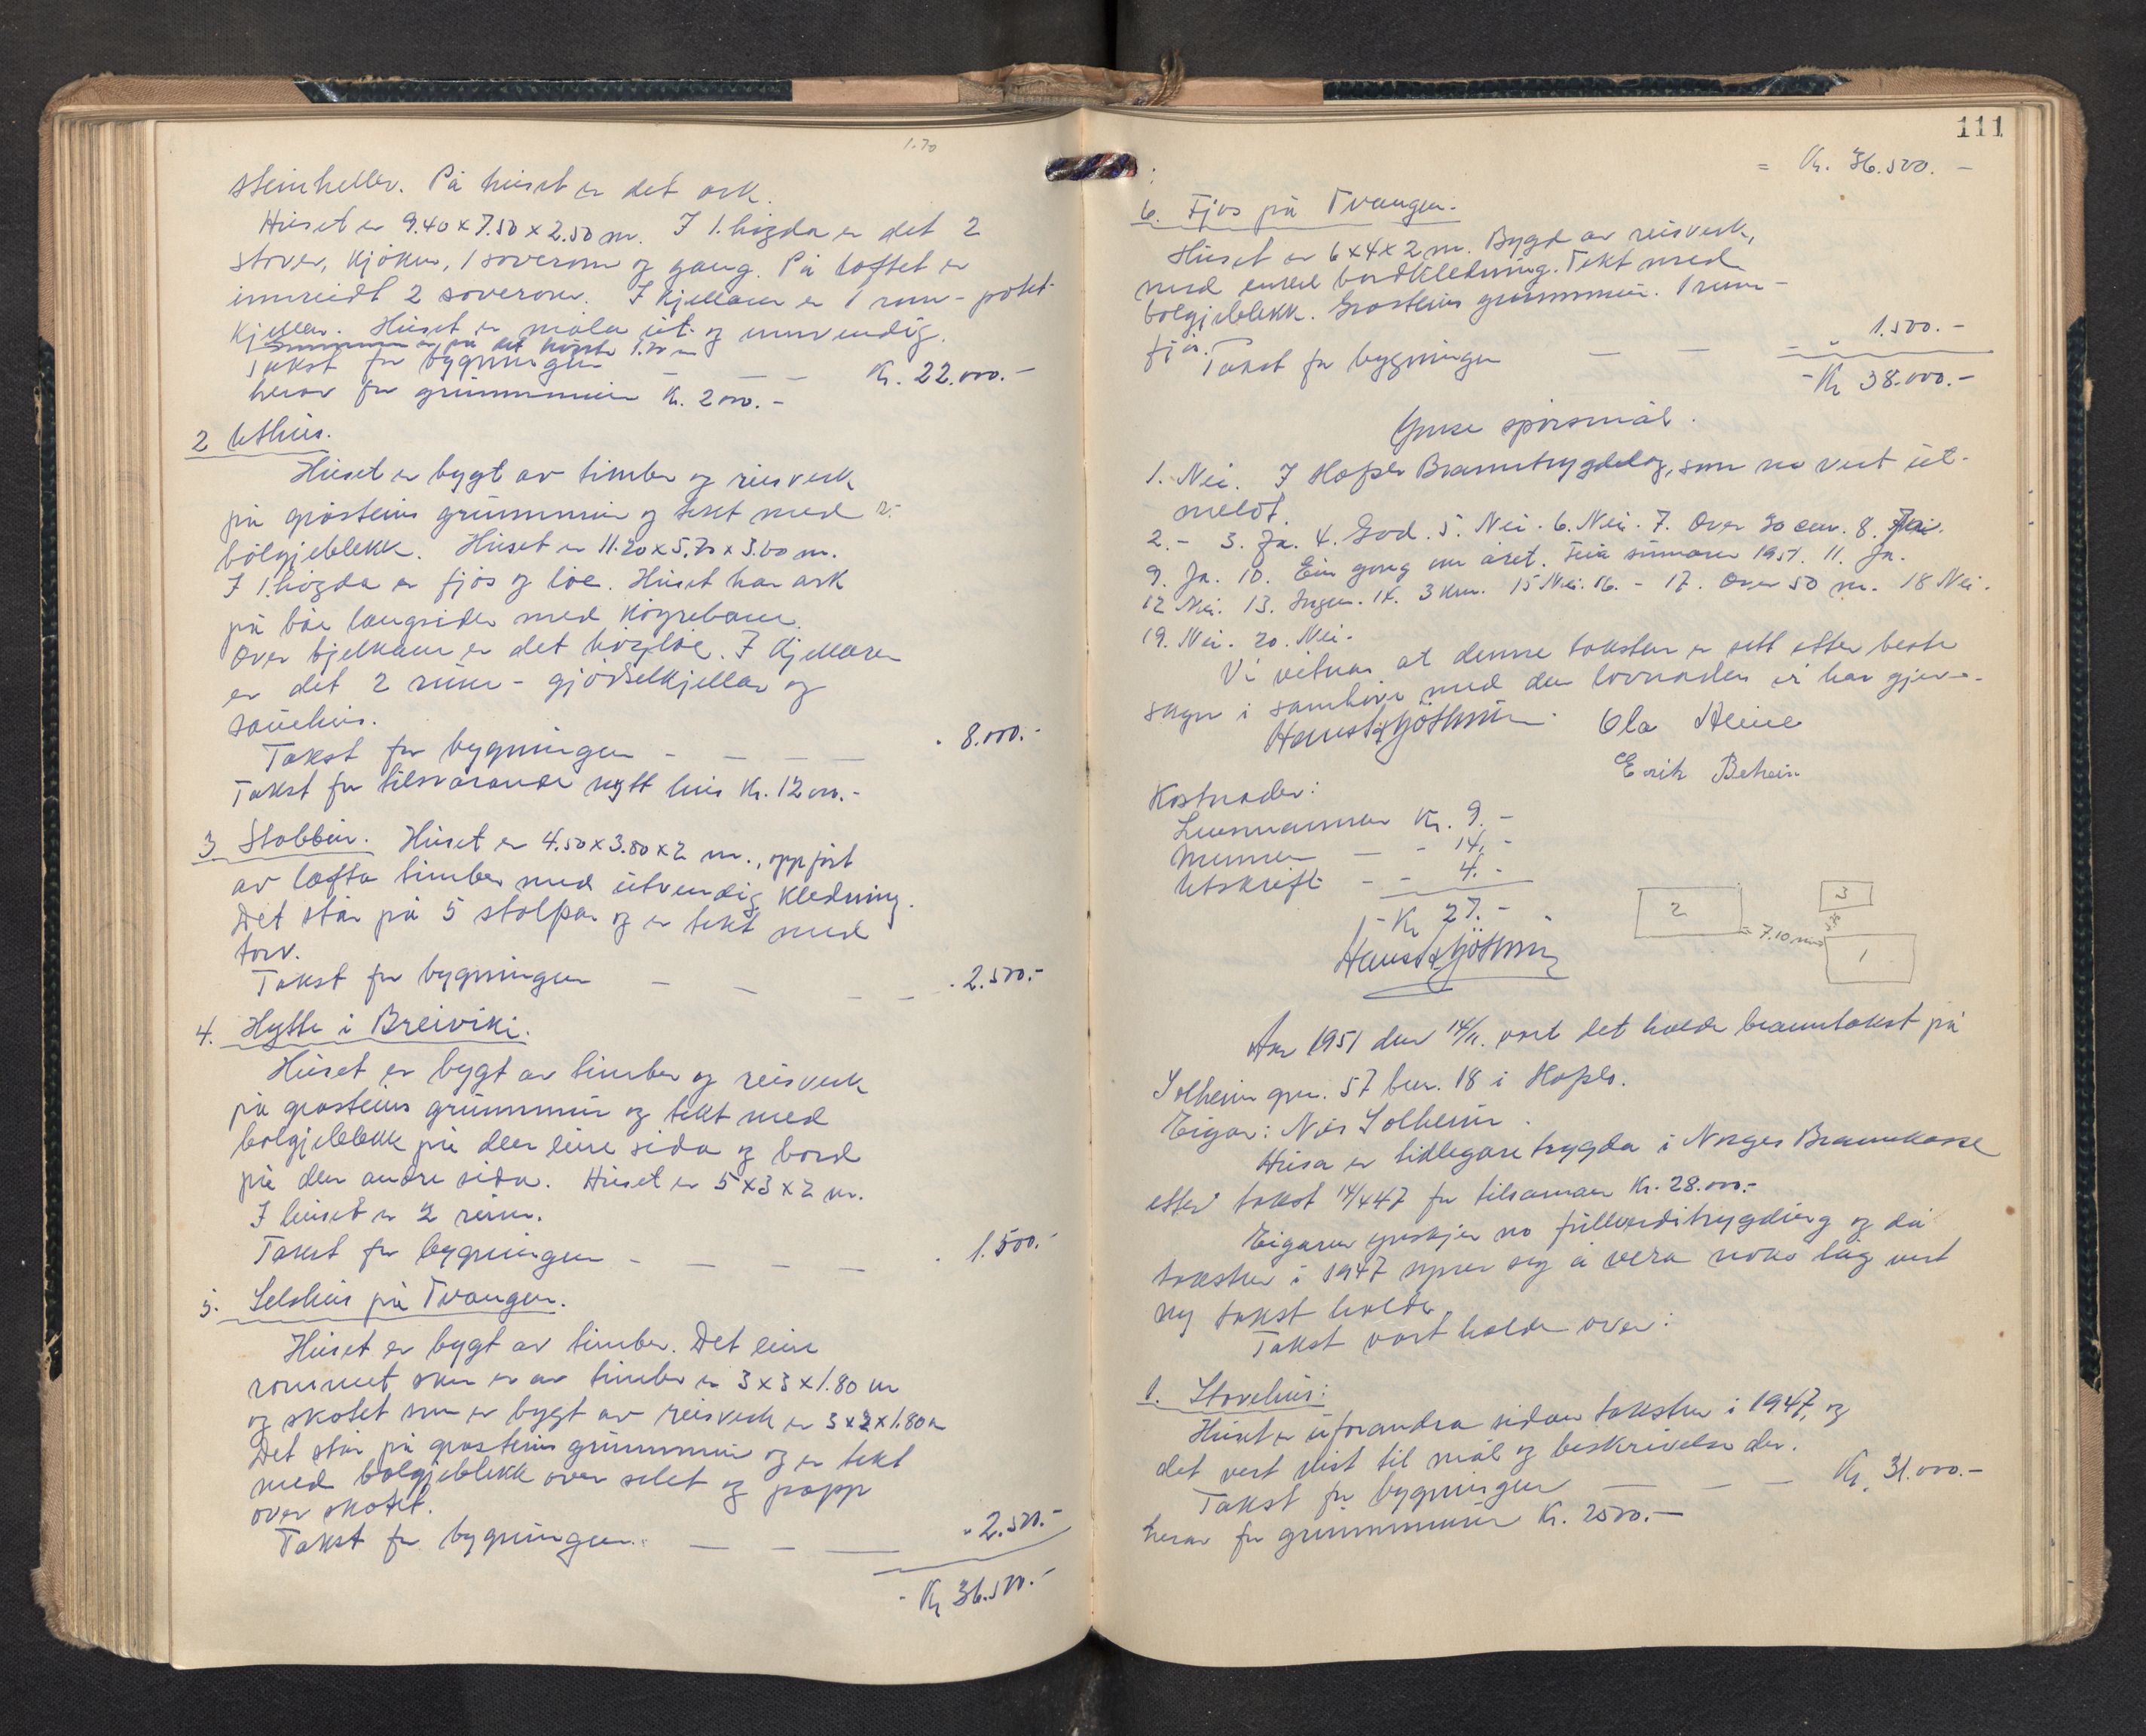 1.70
steinheller. På huset er det ark.
Huset er 9.40 x 7.50 x 2.50 m. I 1. høgda er det 2
stover, kjøken, 1 soverom og gang. På loftet er
innreidt 2 soverom. I kjellaren er 1 rum - potet-
kjellar. Huset er måla ut- og innvendig.
Grunnmuren er på det høgste 1.70 m
Takst for bygningen — — — Kr. 22.000.-
herav for grunnmuren Kr. 2000.-
2 Uthus.
Huset er bygt av timber og reisverk
på gråsteins grunnmur og tekt med
bölgjeblekk. Huset er 11.20 x 5.70 x 3.00 m.
I 1. høgda er fjøs og löe. Huset har ark
på båe langsider med köyrebane.
Over bjelkane er det höyløe. I kjellaren
er det 2 rum - gjödselkjellar og
sauehus.
Takst for bygningen - — — — " 8.000.-
Takst for tilsvarande nytt hus Kr. 12000.-
3 Stabbur. Huset er 4.50 x 3.80 x 2 m., oppført
av lafta timber med utvendig kledning.
Det står på 5 stolpar og er tekt med
torv.
Takst for bygningen — — — — " 2.500.-
4. Hytte i Breiviki.
Huset er bygt av timber og reisverk
på gråsteins grunnmur og tekt med
bolgjeblekk på den eine sida og bord
på den andre sida. Huset er 5 x 3 x 2 m.
I huset er 2 rum.
Takst for bygningen - — — — " 1.500.-
5. Selshus på Tvangen.
Huset er bygt av timber. Det eine
rommet som er av timber er 3 x 3 x 1.80 m
og skotet som er bygt av reisverk er 3 x 2 x 1.80 m
Det står på gråsteins grunnmur og er tekt
med bolgjeblekk over selet og papp
over skotet.
Takst for bygningen. — — — " 2.500.-
- Kr 36.500.-
111
= Kr. 36.500. -
6. Fjøs på Tvangen.
Huset er 6 x 4 x 2 m. Bygd av reisverk,
med enkel bordkledning. Tekt med
bolgjeblekk. Gråsteins grunnmur. 1 rum -
fjøs.
Takst for bygningen — — - " 1.500.-
- Kr 38.000.-
Ymse spørsmål.
1. Nei. I Hafslo Branntrygdelag, som no vert ut-
meldt.
2. - 3. Ja. 4. God. 5. Nei. 6. Nei. 7. Over 30 cm. 8. Nei.
9. Ja. 10. Ein gong om året. Feia sumaren 1951. 11. Ja.
12 Nei. 13. Ingen. 14. 3 km. 15 Nei. 16. - 17. Over 50 m. 18 Nei.
19. Nei. 20. Nei.
Vi vitnar at denne taksten er sett etter beste
skyn i samhøve med den lovnaden vi har gjeve.
Ola Heine
Erik Beheim
Kostnader:
Lensmannen Kr. 9.-
Mennene — - 14.-
Utskrift - - 4.-
- Kr 27.-
2
3
= 7.10 m
1
År 1951 den 14/11. vart det halde branntakst på
Solheim gnr. 57 bnr. 18 i Hafslo.
Eigar: Nils Solheim.
Husa er tidlegare trygda i Norges Brannkasse
etter takst 14/4 47 for tilsaman Kr. 28.000.-
Eigaren ynskjer no fullverditrygding og då
taksten i 1947 syner seg å vera noko låg vert
ny takst halde.
Takst vart halde over:
1. Stovehus:
Huset er uforandra sidan taksten i 1947, og
det vert vist til mål og beskrivelse der.
Takst for bygningen — — — Kr. 31.000.-
herav for grunnmuren Kr. 2500.-